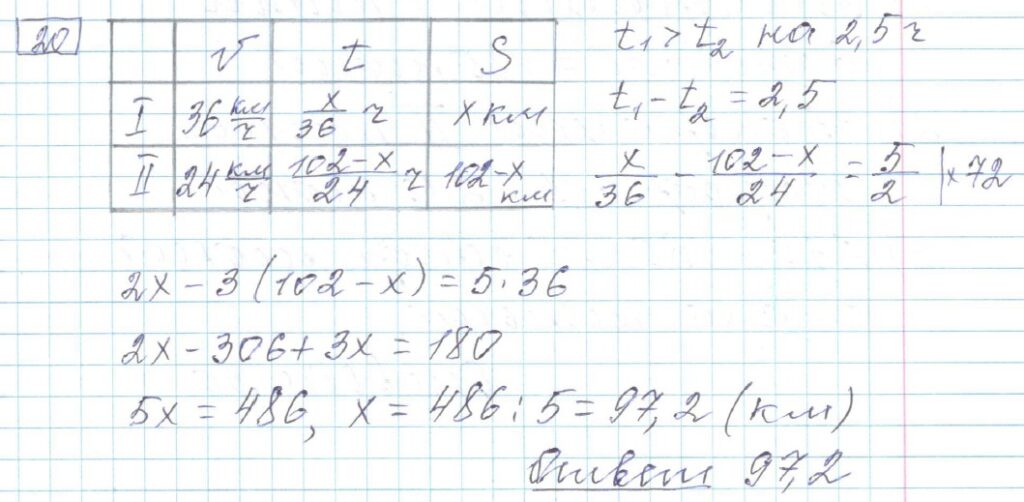 20
V t S
I 36 км/ч x/36 ч x км
II 24 км/ч 102-x/24 ч 102-x км
t₁ > t₂ на 2,5 ч
t₁ - t₂ = 2,5
x/36 - 102-x/24 = 5/2 | x 72
2x - 3 (102 - x) = 5 · 36
2x - 306 + 3x = 180
5x = 486, x = 486 : 5 = 97,2 (км)
Ответ 97,2